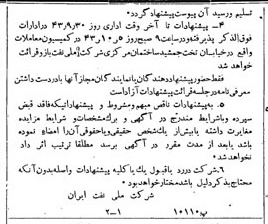 تسلیم ورسید آن پیوست پیشنهاد گردد •
۴ـ پیشنهادات تا آخر وقت اداری روز ۴۳/۹/۳۰ در ادارات
فوق‌الذکر پذیرفته و در ساعت ۹ صبح روز ۴۳/۱۰/۵ در کمیسیون معاملات
واقع در خیابان تخت جمشید ساختمان مرکزی شرکت ملی نفت باز و قرائت
خواهد شد
فقط حضور پیشنهاد دهندگان یا نمایندگان مجاز آنها با در دست داشتن
معرفی‌نامه در جلسه قرائت پیشنهادات آزاد است
۵ـ به پیشنهادات ناقص مبهم و مشروط و پیشنهاداتیکه فاقد قبض
سپرده و باشرایط مندرج در آگهی و برگ مشخصات و شرایط مزایده
مغایرت داشته یا بیش از یک شخص حقیقی و یا حقوقی آن را امضاء نموده
باشد یا بعد از مدت مقرر در آگهی برسد مطلقا ترتیب اثر داد
نخواهد شد •
۶ـ شرکت در رد یا قبول یک یا کلیه پیشنهادات واصله بدون آنکه
محتاج بذکر دلیل باشد مختار خواهد بود •
شرکت ملی نفت ایران
۲ـ۱
۱۰۱۱۰ب